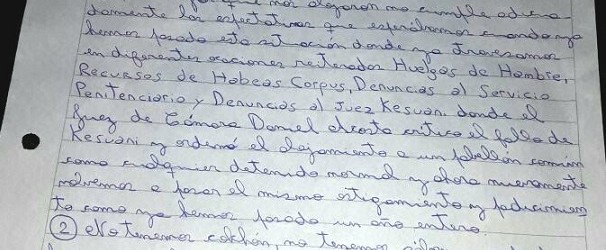 que nos alojaron no cumple adecua-
damente las espectativas que esperabamos cuando ya
hemos pasado esta situación donde ya travesamos
en diferentes ocaciones reiteradas Huelgas de Hambre,
Recursos de Habeas Corpus, Denuncias al Servicio
Penitenciario y Denuncias al Juez Kesuani donde el
Juez de Cámara Daniel critico el fallo de
Kesuani y ordeno el alojamiento a un pabellon comun
como cualquier detenido normal y ahora nuevamente
volvemos a pasar el mismo ostigamiento y padecimien
to como ya hemos pasado un año entero.
② No tenemos colchón, no tenemos